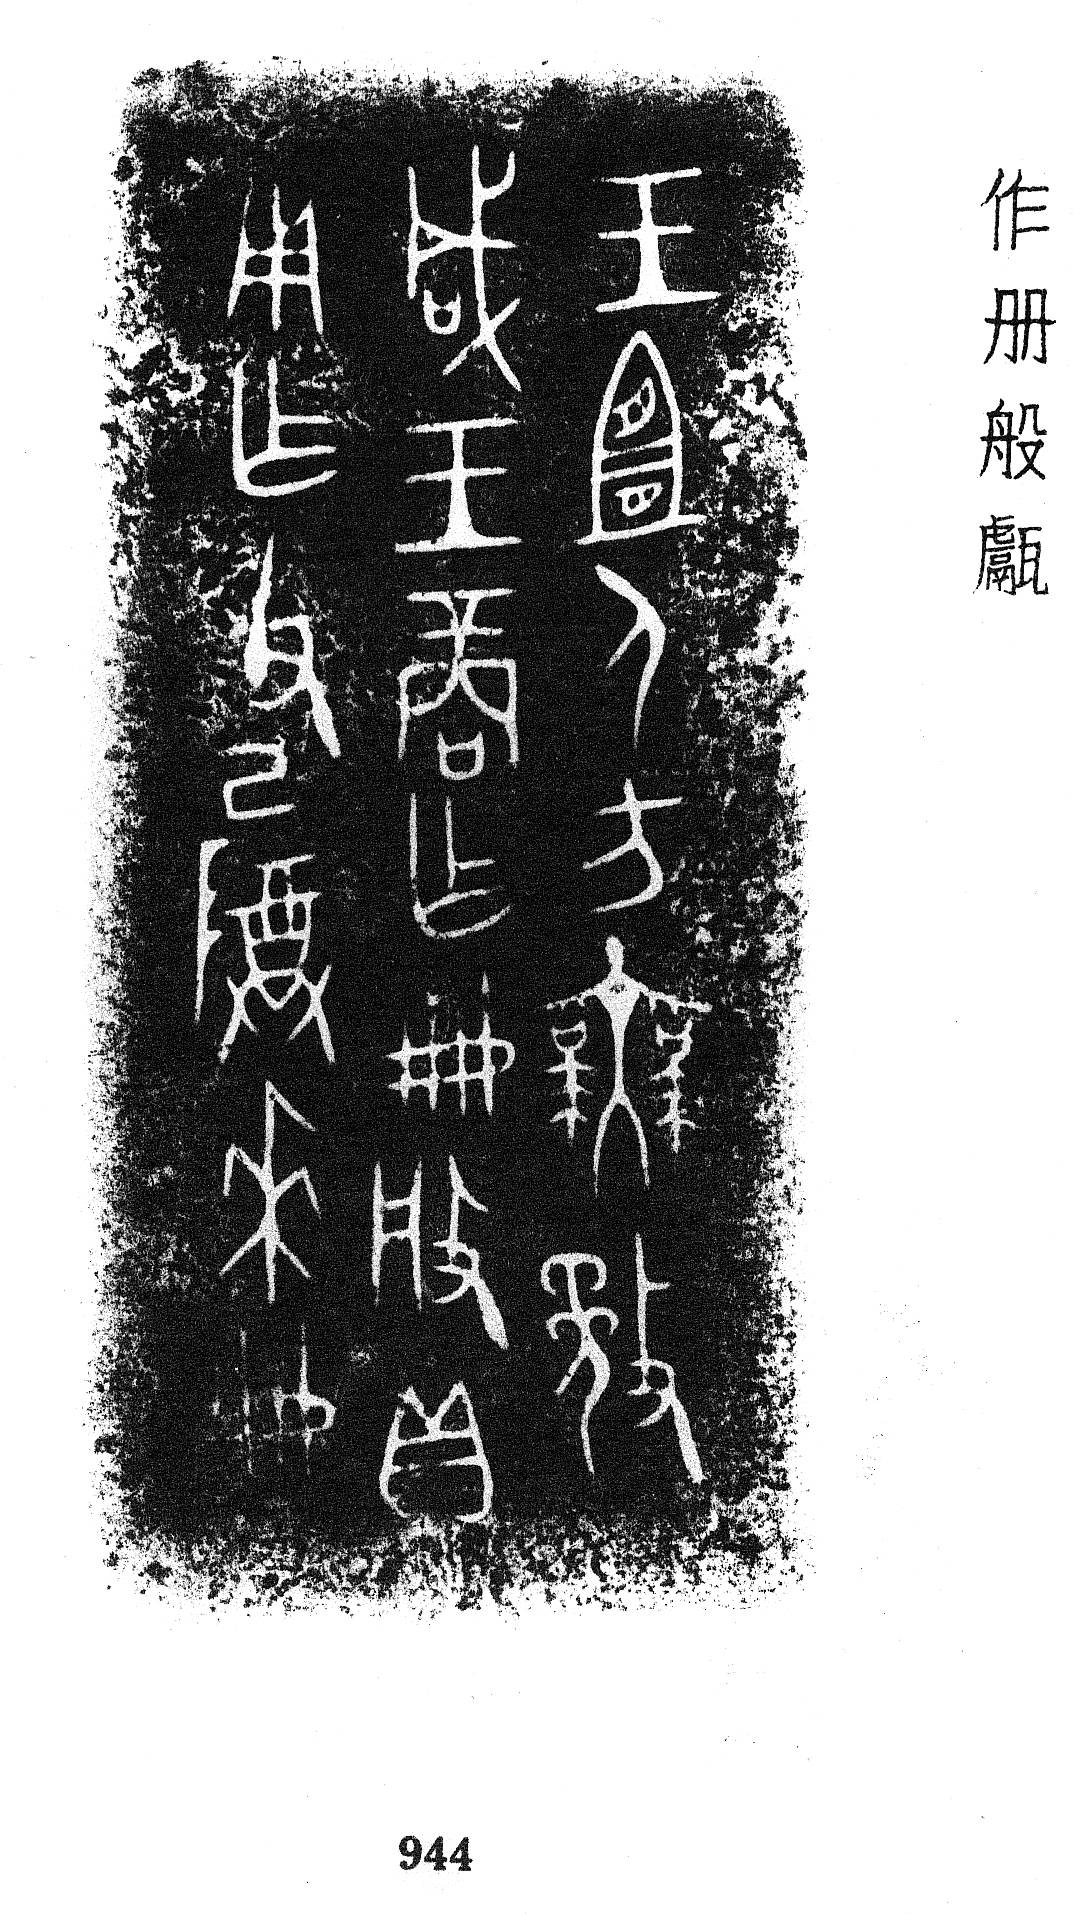 作册般甗
王宜人方無敄
咸王商乍冊般貝
用乍父己尊來冊
944